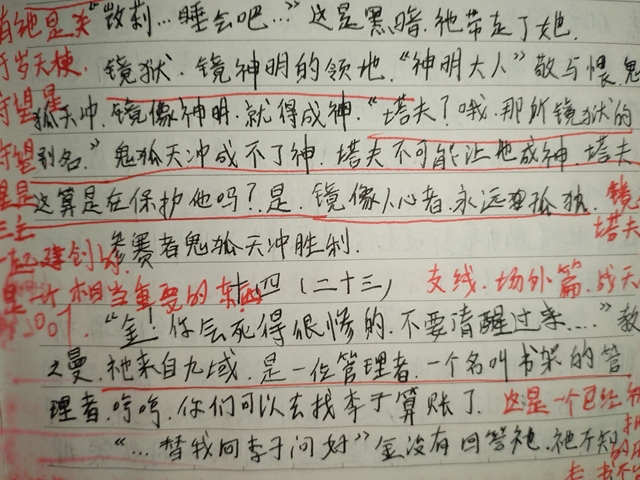 "敛莉…睡会吧…"这是黑暗.祂带走了她.
镜狱.镜神明的领地."神明大人"敬与惧.鬼
狐天冲.镜像神明.就得成神."塔夫?哦.那所镜狱的
别名."鬼狐天冲成不了神.塔夫不可能让他成神.塔夫
这算是在保护他吗?是.镜像人心者.永远要孤独.
参赛者鬼狐天冲胜利.
十四(二十三) 支线.场外篇.成天
"金!你会死得很惨的.不要清醒过来…."教
之曼.祂来自九域.是一位管理者.一个名叫书架的管
理者.哼哼.你们可以去找李子算账了. 这是一个已经
"…替我向李子问好"金没有回答祂.祂不知
有祂是关
于岁天楝
守望是
守望
望是
三主
一起建创的
是一片相当重要的东西
镜
塔夫